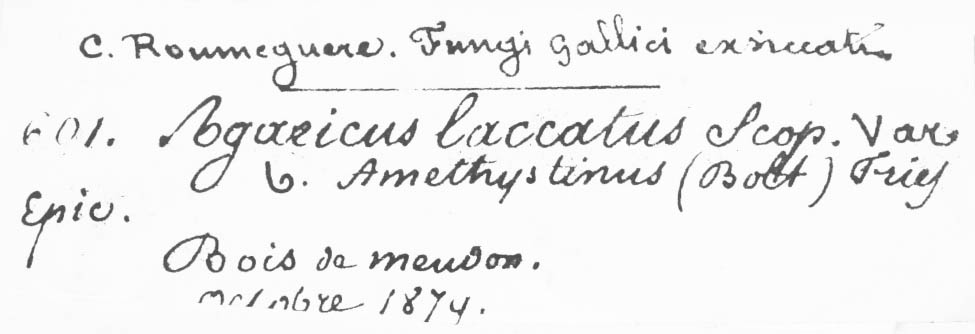 C. Roumeguere. Fungi Gallici exsiccati.
601. Agaricus laccatus Scop. Var.
b. Amethystinus (Bolt) Fries
Epic.
Bois de meudon.
octobre 1874.